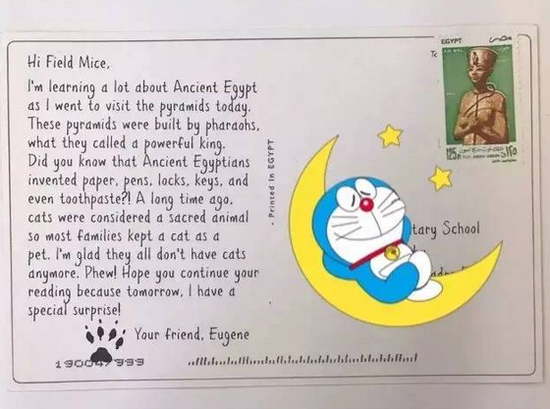 Hi Field Mice,
I'm learning a lot about Ancient Egypt
as I went to visit the pyramids today.
These pyramids were built by pharaohs,
what they called a powerful king.
Did you know that Ancient Egyptians
invented paper, pens, locks, keys, and
even toothpaste?! A long time ago,
cats were considered a sacred animal
so most families kept a cat as a
pet. I'm glad they all don't have cats
anymore. Phew! Hope you continue your
reading because tomorrow, I have a
special surprise!
Your friend, Eugene
Printed in EGYPT
EGYPT
To
125
tary School